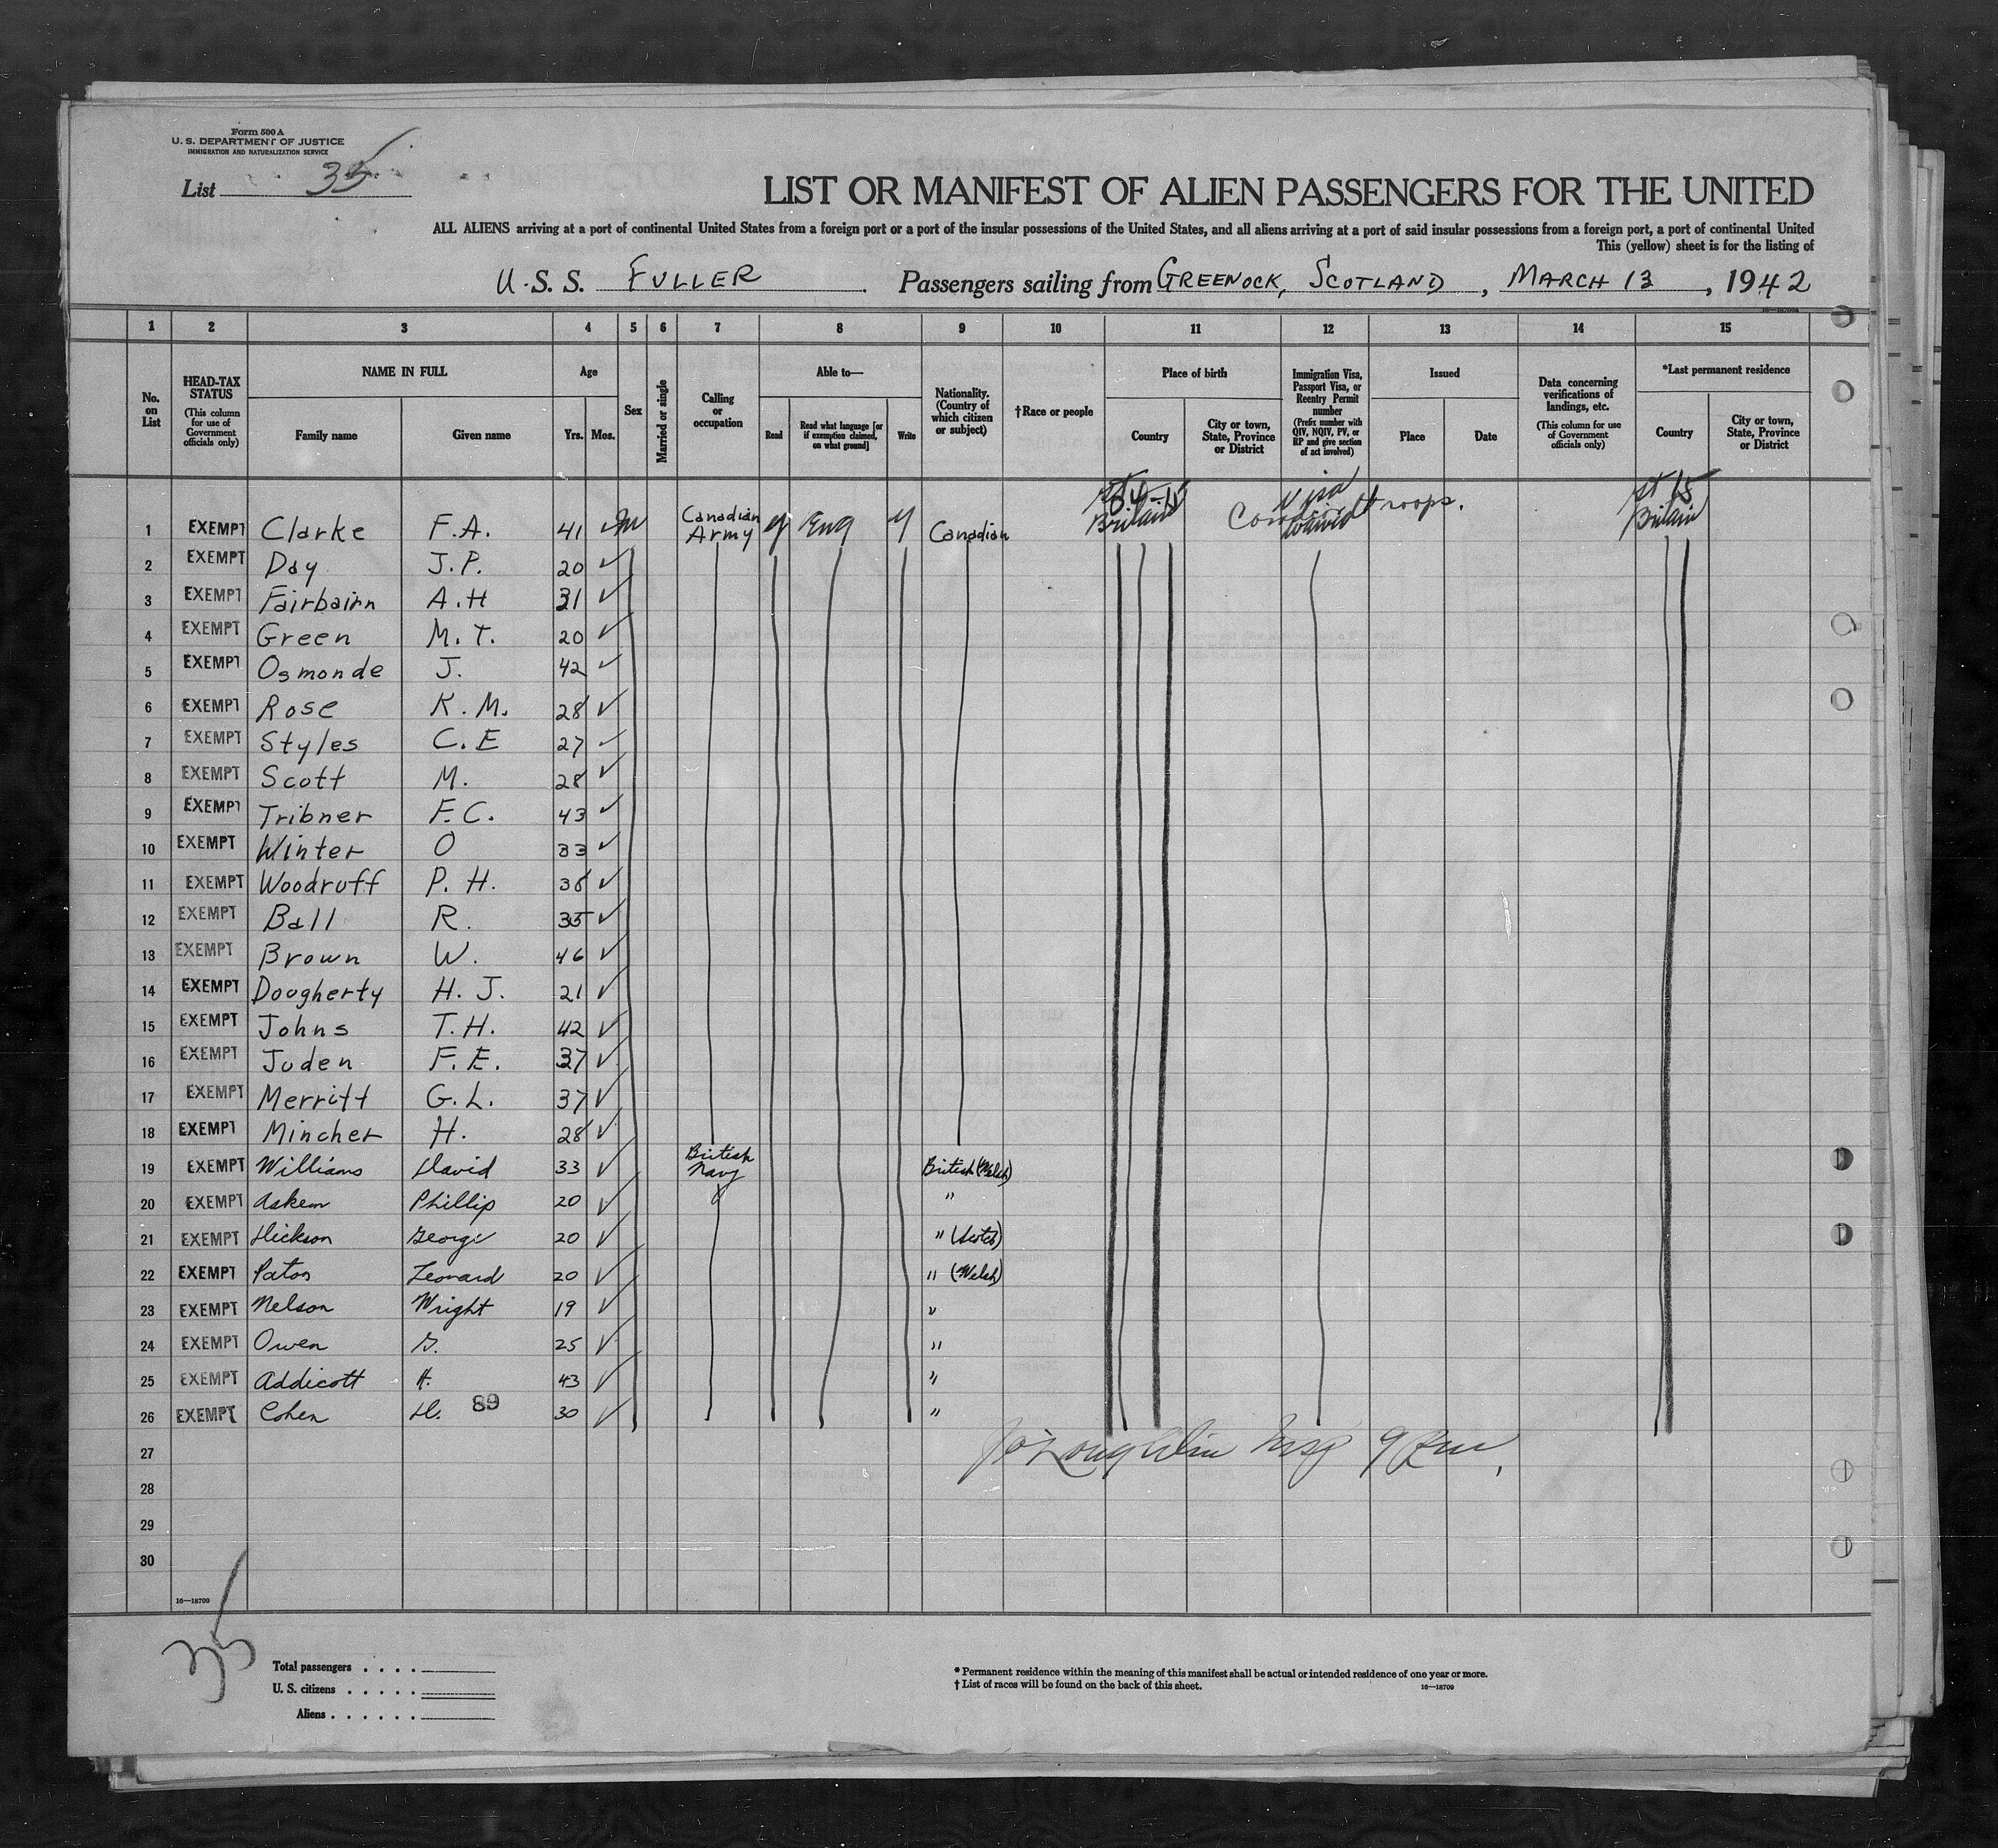 Form 500 A
U. S. DEPARTMENT OF JUSTICE
IMMIGRATION AND NATURALIZATION SERVICE
List 35
LIST OR MANIFEST OF ALIEN PASSENGERS FOR THE UNITED
ALL ALIENS arriving at a port of continental United States from a foreign port or a port of the insular possessions of the United States, and all aliens arriving at a port of said insular possessions from a foreign port, a port of continental United
This (yellow) sheet is for the listing of
U.S.S. FULLER Passengers sailing from GREENOCK, SCOTLAND, MARCH 13, 1942
1 2 3 4 5 6 7 8 9 10 11 12 13 14 15
No. on List
HEAD-TAX STATUS (This column for use of Government officials only)
NAME IN FULL
Family name Given name
Age
Yrs. Mos.
Sex
Married or single
Calling or occupation
Able to—
Read
Read what language [or if exemption claimed, on what ground]
Write
Nationality. (Country of which citizen or subject)
†Race or people
Place of birth
Country
City or town, State, Province or District
Immigration Visa, Passport Visa, or Reentry Permit number (Prefix number with QIV, NQIV, PV, or RP and give section of act involved)
Issued
Place Date
Data concerning verifications of landings, etc. (This column for use of Government officials only)
*Last permanent residence
Country
City or town, State, Province or District
1 EXEMPT Clarke F.A. 41 M Canadian Army y Eng y Canadian Britain Visa waived troops. Britain
2 EXEMPT Day J.P. 20
3 EXEMPT Fairbairn A.H 31
4 EXEMPT Green M.T. 20
5 EXEMPT Osmonde J. 42
6 EXEMPT Rose K.M. 28
7 EXEMPT Styles C.E 27
8 EXEMPT Scott M. 28
9 EXEMPT Tribner F.C. 43
10 EXEMPT Winter O 33
11 EXEMPT Woodruff P.H. 38
12 EXEMPT Ball R. 35
13 EXEMPT Brown W. 46
14 EXEMPT Dougherty H.J. 21
15 EXEMPT Johns T.H. 42
16 EXEMPT Juden F.E. 37
17 EXEMPT Merritt G.L. 37
18 EXEMPT Mincher H. 28
19 EXEMPT Williams David 33 British Navy British (Welsh)
20 EXEMPT Askem Phillip 20 "
21 EXEMPT Dickson George 20 " (Scotch)
22 EXEMPT Paton Leonard 20 " (Welsh)
23 EXEMPT Nelson Wright 19 "
24 EXEMPT Owen G. 25 "
25 EXEMPT Addicott H. 43 "
26 EXEMPT Cohen D. 89 30 "
27
28
29
30
16—18709
35
Total passengers . . . .
U. S. citizens . . . . .
Aliens . . . . . .
* Permanent residence within the meaning of this manifest shall be actual or intended residence of one year or more.
† List of races will be found on the back of this sheet. 16—18709